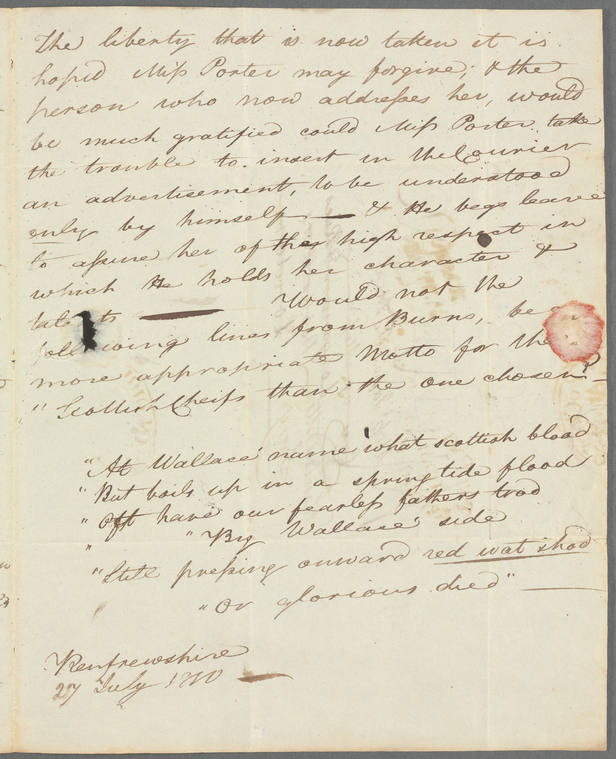 The liberty that is now taken it is
hopid Miss Porter may forgive; & the
person who now addresses her, would
be much gratified could Miss Porter take
the trouble to insert in the Courier
an advertisement, to be understood
only by himself — & He begs leave
to assure her of the high respect in
which He holds her character &
tale ts — Would not the
following lines from Burns, be a
more appropriate Motto for the
"Scottish Cheifs than the one chosen? —
"At Wallace' name what scottish blood
"But boils up in a spring tide flood
"Oft have our fearless fathers trod
" "By Wallace' side
"Still pressing onward red wat shod
"Or glorious died" —
Renfrewshire
27 July 1810 —